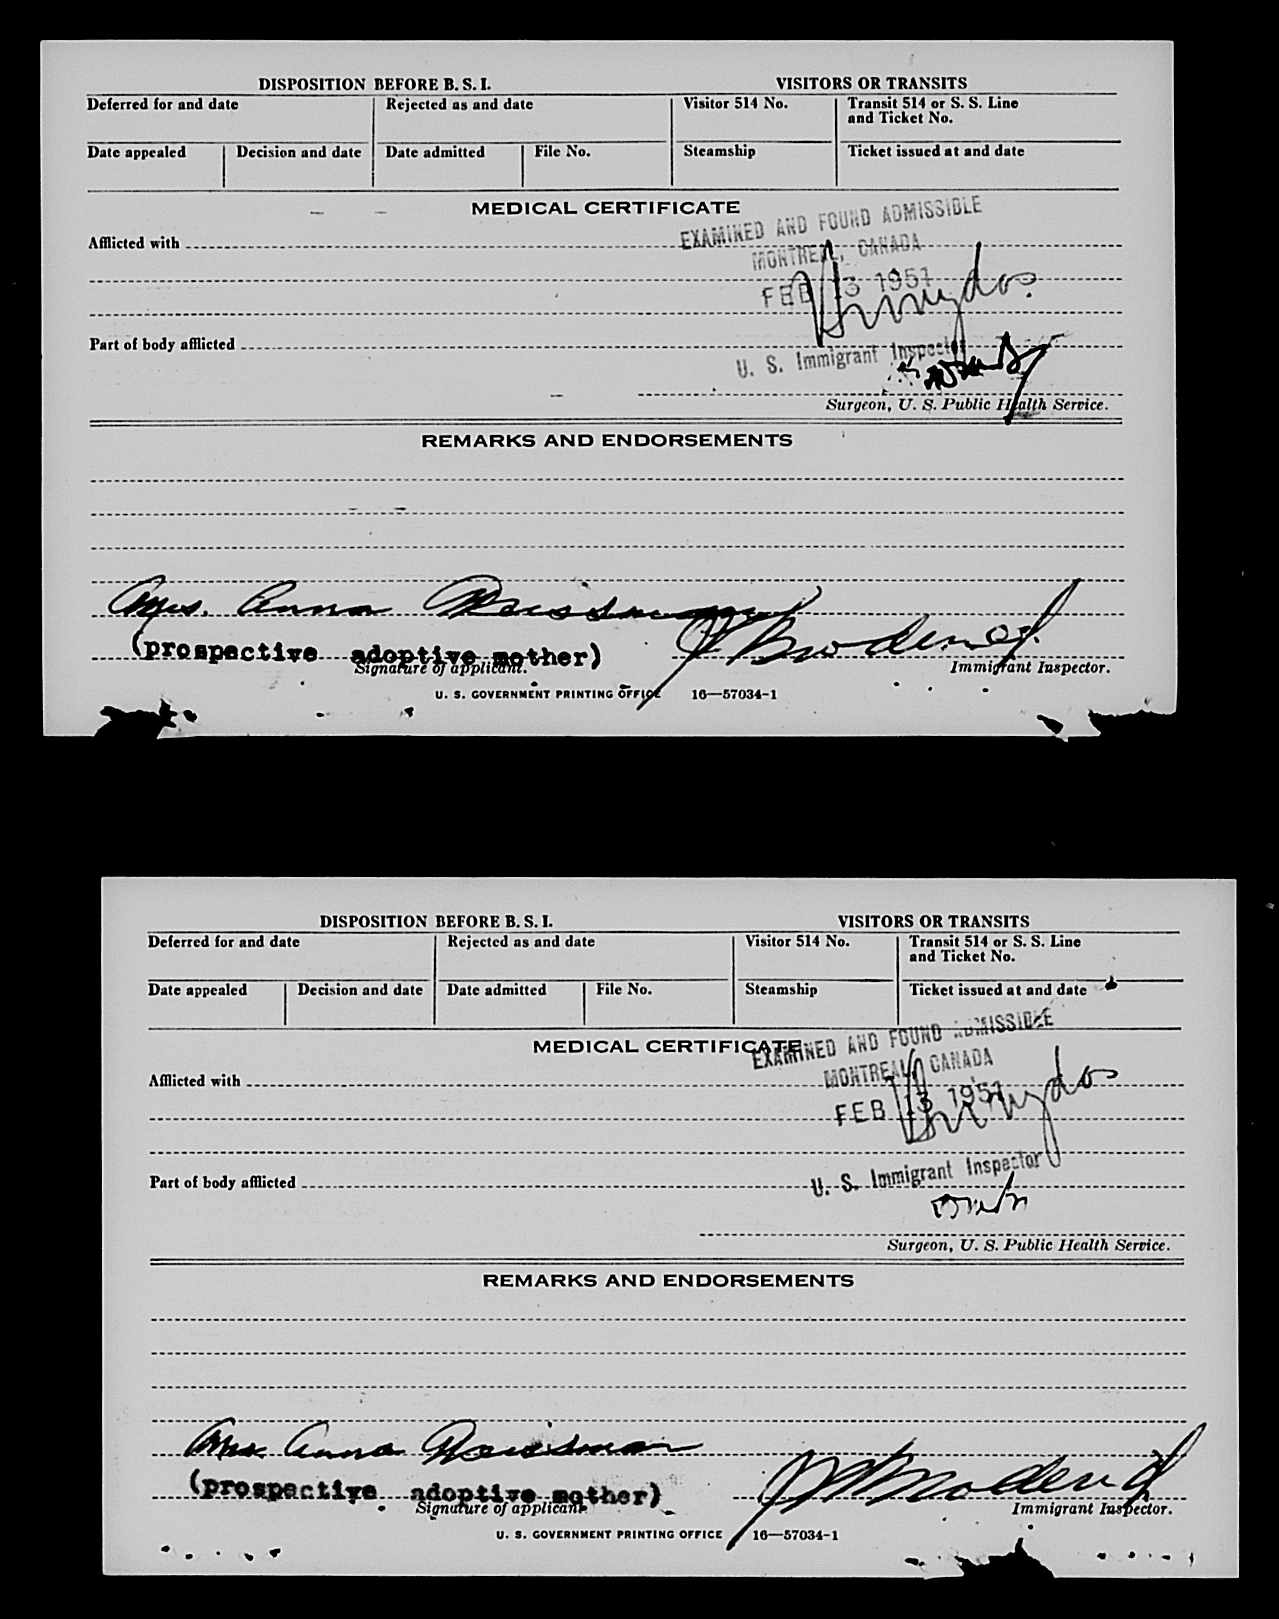 DISPOSITION BEFORE B. S. I. VISITORS OR TRANSITS
Deferred for and date Rejected as and date Visitor 514 No. Transit 514 or S. S. Line
and Ticket No.
Date appealed Decision and date Date admitted File No. Steamship Ticket issued at and date
MEDICAL CERTIFICATE
EXAMINED AND FOUND ADMISSIBLE
Afflicted with
MONTREAL, CANADA
FEB 13 1951
Part of body afflicted
U. S. Immigrant Inspector
Surgeon, U. S. Public Health Service.
REMARKS AND ENDORSEMENTS
Mrs. Anna
(prospective adoptive mother)
Signature of applicant. Immigrant Inspector.
U. S. GOVERNMENT PRINTING OFFICE 16—57034-1
DISPOSITION BEFORE B. S. I. VISITORS OR TRANSITS
Deferred for and date Rejected as and date Visitor 514 No. Transit 514 or S. S. Line
and Ticket No.
Date appealed Decision and date Date admitted File No. Steamship Ticket issued at and date
MEDICAL CERTIFICATE
EXAMINED AND FOUND ADMISSIBLE
Afflicted with
MONTREAL, CANADA
FEB 13 1951
Part of body afflicted
U. S. Immigrant Inspector
Surgeon, U. S. Public Health Service.
REMARKS AND ENDORSEMENTS
Mrs. Anna
(prospective adoptive mother)
Signature of applicant. Immigrant Inspector.
U. S. GOVERNMENT PRINTING OFFICE 16—57034-1